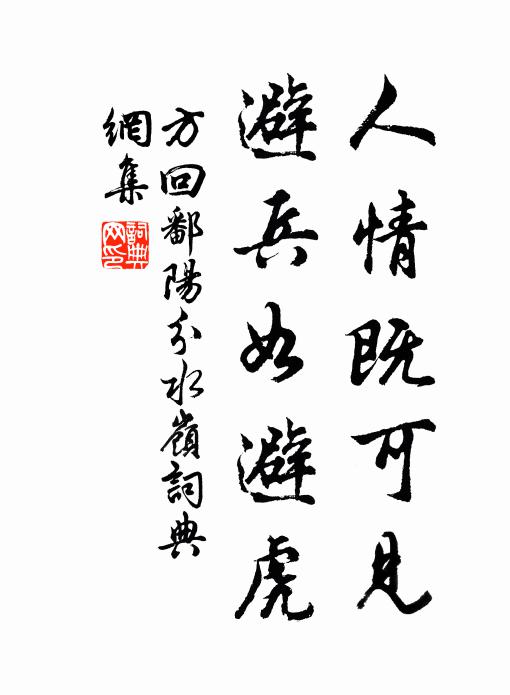 人情既可見
避兵如避虎
方回鄱陽分水嶺詞典
網集
詞典網印